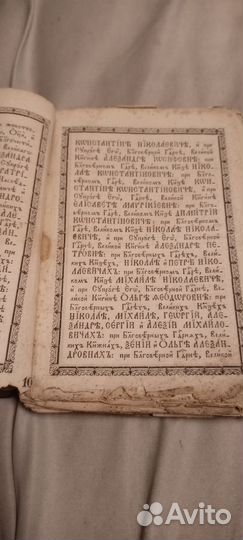 КѠНСТАНТІНѢ НІКОЛАЕВИЧѢ, и҆ при
Сꙋпрꙋгѣ Е҆гѡ̀, Бл҃говѣрной Гдⷭ҇рнѣ, Великой
Кнѧгинѣ АЛЕѮАНДРѢ І҆ѠСИФОВНѢ: при
Бл҃говѣрномъ Гдⷭ҇рѣ, Великомъ Кнѧзѣ НІКО-
ЛАѢ КѠНСТАНТІНОВИЧѢ: при Бл҃говѣр-
номъ Гдⷭ҇рѣ, Великомъ Кнѧзѣ КѠН-
СТАНТІНѢ КѠНСТАНТІНОВИЧѢ, и҆ при
Сꙋпрꙋгѣ Е҆гѡ̀, Бл҃говѣрной Гдⷭ҇рнѣ, Великой Кнѧгинѣ
Е҆ЛІСАВЕТѢ МАѴРІКІЕВНѢ: при Бл҃говѣр-
номъ Гдⷭ҇рѣ, Великомъ Кнѧзѣ ДИМИТРІИ
КѠНСТАНТІНОВИЧѢ: при Бл҃говѣрномъ
Гдⷭ҇рѣ, Великомъ Кнѧзѣ НІКОЛАѢ НІКОЛА-
ЕВИЧѢ, и҆ при Сꙋпрꙋгѣ Е҆гѡ̀, Бл҃говѣрной Гдⷭ҇рнѣ,
Великой Кнѧгинѣ АЛЕѮАНДРѢ ПЕ-
ТРОВНѢ: при Бл҃говѣрныхъ Гдⷭ҇рехъ, Великихъ
Кнѧзехъ, НІКОЛАѢ и҆ ПЕТРѢ НІКО-
ЛАЕВИЧАХЪ: при Бл҃говѣрномъ Гдⷭ҇рѣ, Великомъ
Кнѧзѣ МІХАИЛѢ НІКОЛАЕВИЧѢ, и҆
при Сꙋпрꙋгѣ Е҆гѡ̀, Бл҃говѣрной Гдⷭ҇рнѣ, Великой
Кнѧгинѣ О҆ЛЬГѢ ѲЕОДОРОВНѢ: при
Бл҃говѣрныхъ Гдⷭ҇рехъ, Великихъ Кнѧзехъ
НІКОЛАѢ, МІХАИЛѢ, ГЕѠРГІИ, АЛЕ-
ѮАНДРѢ, СЕРГІИ и҆ АЛЕѮІИ МІХАИЛО-
ВИЧАХЪ: при Бл҃говѣрныхъ Гдⷭ҇рнѧхъ, Вели-
кихъ Кнѧжнахъ, ѮЕНІИ и҆ О҆ЛЬГѢ АЛЕѮАН-
ДРОВНАХЪ: при Бл҃говѣрной Гдⷭ҇рнѣ, Великой
Avito